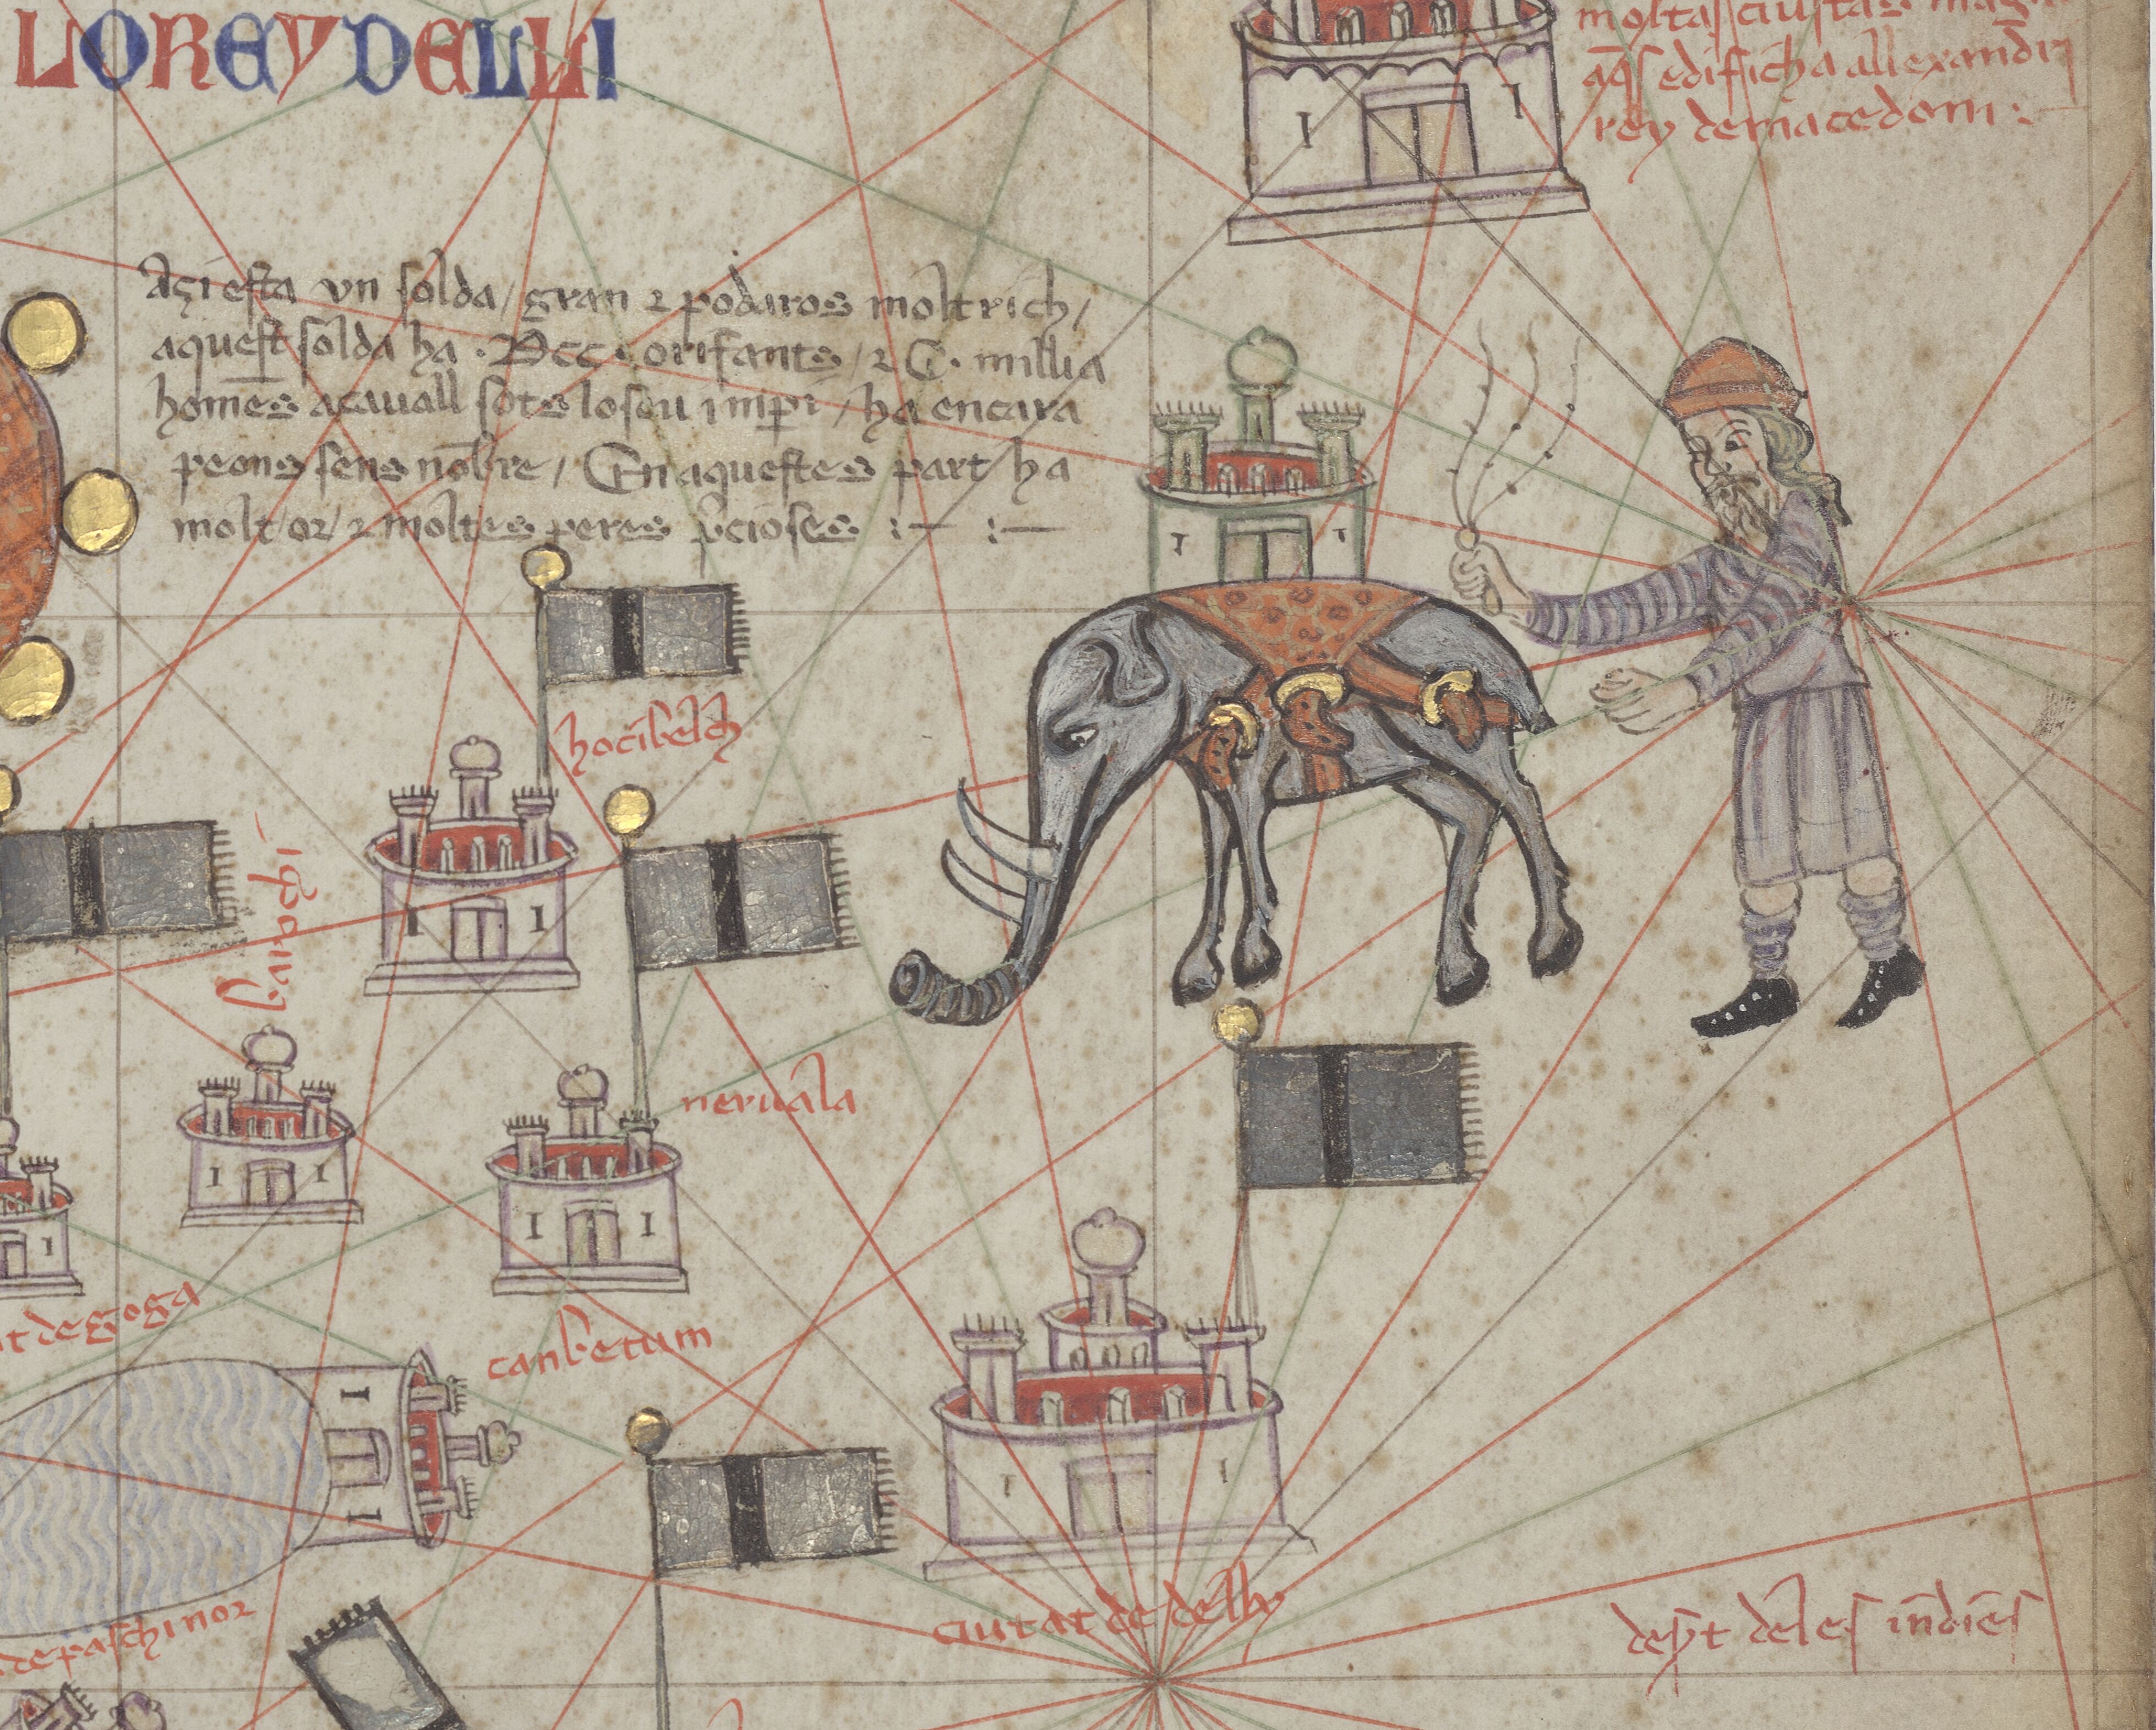 LO REY DELLI
moltas ciutas
aq̄s edificha allexandri
rey de macedoni :
Açi esta vn solda / gran ⁊ podaros molt rich /
aquest solda ha · DCC · orifants / ⁊ C · millia
homēs a cauall sots lo seu imꝑi / ha encara
peons sens nōbre / En aquestes part ha
molt / or / ⁊ moltes peres p̄cioses :— :—
hocibelch
neruala
t de goga
canbetum
de paschinor
ciutat de delly
dep̄t deles īndiēs